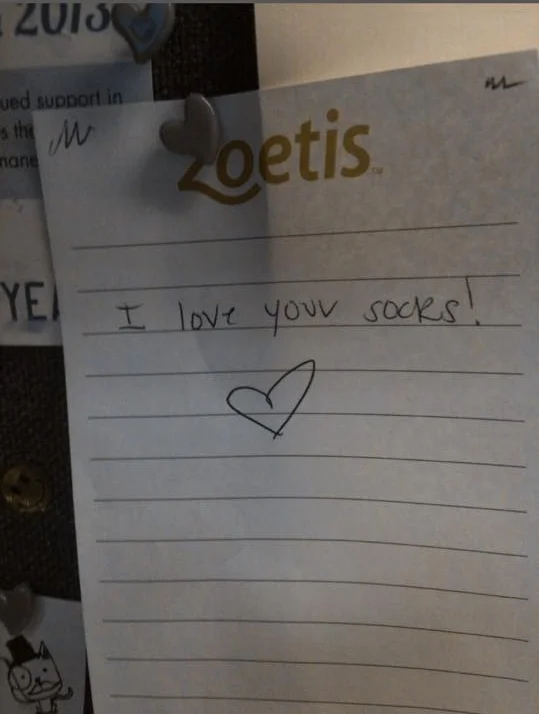 2013
ued support in
s the
mane
zoetis
YEA
I love your socks!